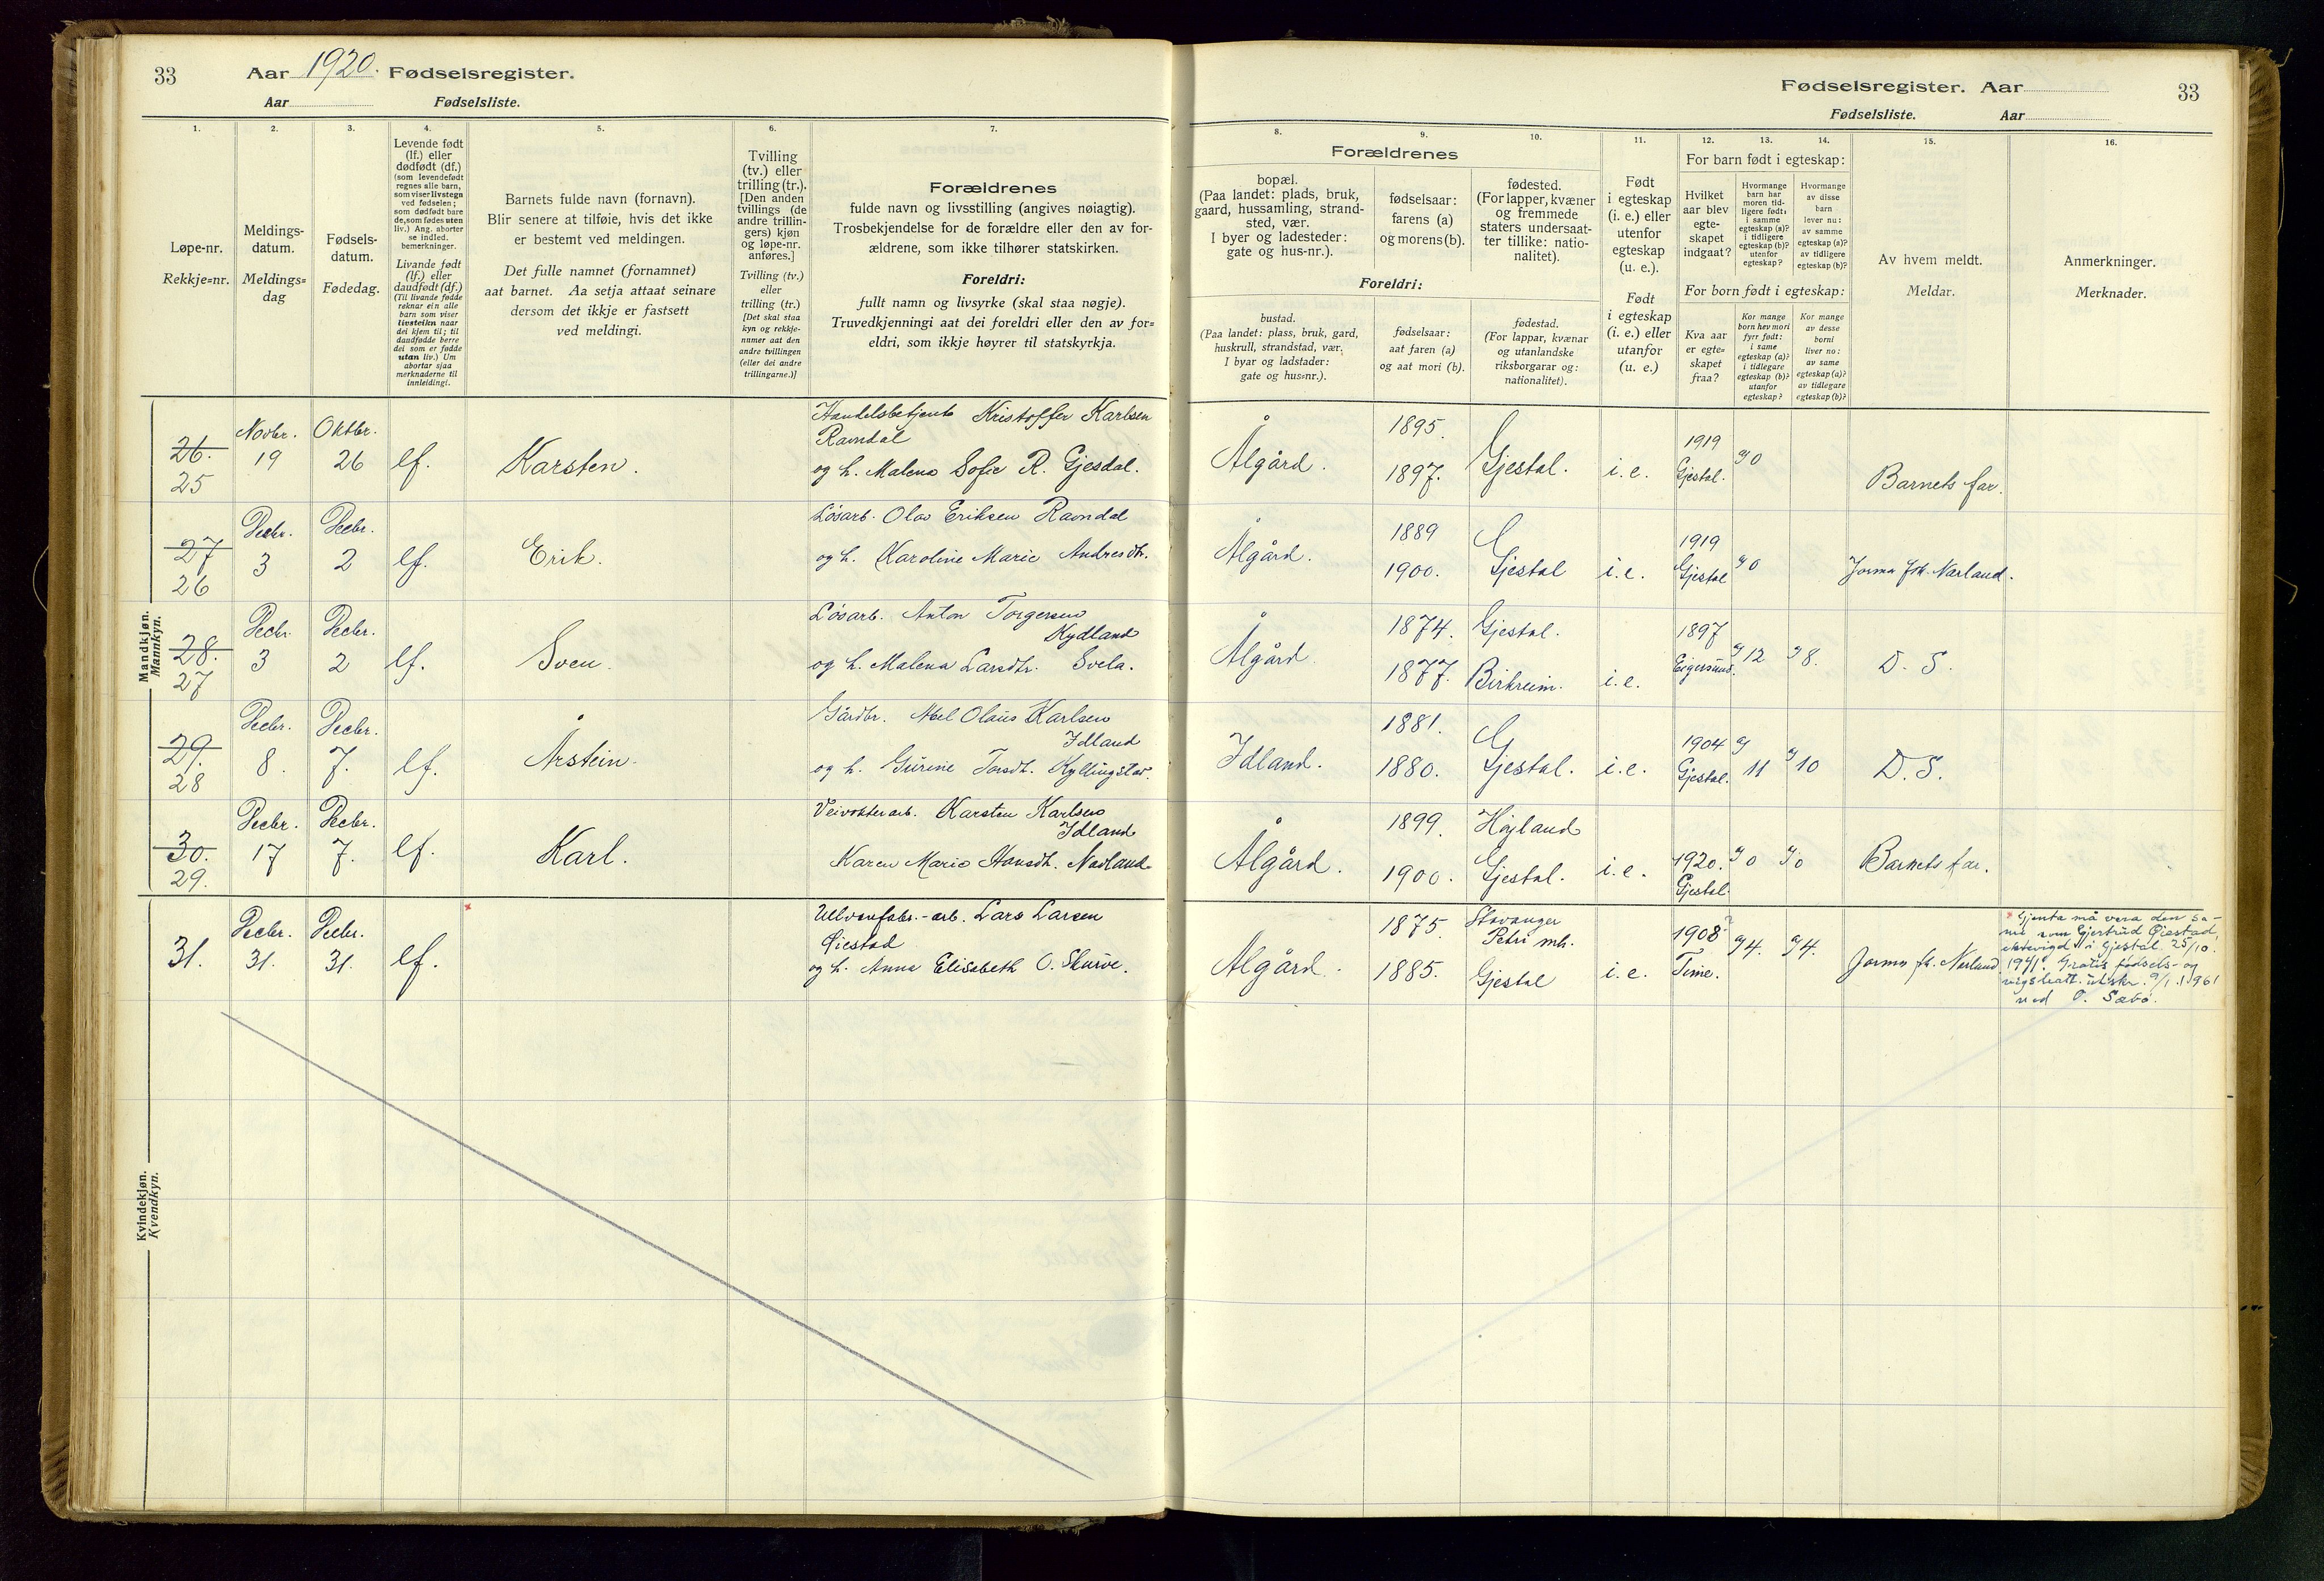 33 Aar 1920. Fødselsregister.
Aar Fødselsliste.
1.
Løpe-nr.
Rekkje=nr.
2.
Meldings-
datum.
Meldings=
dag
3.
Fødsels-
datum.
Fødedag.
4.
Levende født
(lf.) eller
dødfødt (df.)
(som levendefødt
regnes alle barn,
som viser livstegn
ved fødselen;
som dødfødt bare
de, som fødes uten
liv.) Ang. aborter
se indled.
bemerkninger.
Livande født
(lf.) eller
daudfødt (df.)
(Til livande fødde
reknar ein alle
barn som viser
livsteikn naar
dei kjem til; til
daudfødde berre
dei som er fødde
utan liv.) Um
abortar sjaa
merknaderne til
innleidingi.
5.
Barnets fulde navn (fornavn).
Blir senere at tilføie, hvis det ikke
er bestemt ved meldingen.
Det fulle namnet (fornamnet)
aat barnet. Aa setja attaat seinare
dersom det ikkje er fastsett
ved meldingi.
6.
Tvilling
(tv.) eller
trilling (tr.).
[Den anden
tvillings (de
andre trillin-
gers) kjøn
og løpe-nr.
anføres.]
Tvilling (tv.)
eller
trilling (tr.)
[Det skal staa
kyn og rekkje-
numer aat den
andre tvillingen
(eller dei andre
trillingarne.)]
7.
Forældrenes
fulde navn og livsstilling (angives nøiagtig).
Trosbekjendelse for de forældre eller den av for-
ældrene, som ikke tilhører statskirken.
Foreldri:
fullt namn og livsyrke (skal staa nøgje).
Truvedkjenningi aat dei foreldri eller den av for=
eldri, som ikkje høyrer til statskyrkja.
Mandkjøn.
Mannkyn.
26.
25
Novbr.
19
Oktbr.
26
lf.
Karsten.
Handelsbetjent Kristoffer Karlsen
Ravndal
og h. Malena Sofie R. Gjesdal.
27
26
Decbr.
3
Decbr.
2
lf.
Erik.
Løsarb. Olav Eriksen Ravndal
og h. Karoline Marie Andresdtr.
28.
27
Decbr.
3
Decbr.
2
lf.
Sven.
Løsarb. Anton Torgersen
Kydland
og h. Malena Larsdtr. Svela.
29.
28
Decbr.
8.
Decbr.
7.
lf.
Årstein.
Gårdbr. Abel Olaus Karlsen
Idland
og h. Gurine Torsdtr. Kyllingstad.
30.
29.
Decbr.
17
Decbr.
7.
lf.
Karl.
Veivokterarb. Karsten Karlsen
Idland
Karen Marie Hansdtr. Nødland
Kvindekjøn.
Kvendkyn.
31.
Decbr.
31.
Decbr.
31.
lf.
Uldvarefabr.-arb. Lars Larsen
Øiestad
og h. Anna Elisabeth O. Skurve.
Fødselsregister. Aar 33
Fødselsliste. Aar
8. 9. 10.
Forældrenes
bopæl.
(Paa landet: plads, bruk,
gaard, hussamling, strand-
sted, vær.
I byer og ladesteder:
gate og hus-nr.).
fødselsaar:
farens (a)
og morens (b).
fødested.
(For lapper, kvæner
og fremmede
staters undersaat-
ter tillike: natio-
nalitet).
Foreldri:
bustad.
(Paa landet: plass, bruk, gard,
huskrull, strandstad, vær.
I byar og ladstader:
gate og hus=nr.).
fødselsaar:
aat faren (a)
og aat mori (b).
fødestad.
(For lappar, kvænar
og utanlandske
riksborgarar og:
nationalitet).
11.
Født
i egteskap
(i. e.) eller
utenfor
egteskap
(u. e.).
Født
i egteskap
(i. e.) eller
utanfor
(u. e.)
12. 13. 14.
For barn født i egteskap:
Hvilket
aar blev
egte-
skapet
indgaat?
Hvormange
barn har
moren tid-
ligere født:
i samme
egteskap (a)?
i tidligere
egteskap (b)?
utenfor
egteskap?
Hvormange
av disse
barn
lever nu:
av samme
egteskap (a)?
av tidligere
egteskap (b)?
For born født i egteskap:
Kva aar
er egte=
skapet
fraa?
Kor mange
born hev mori
fyrr født:
i same
egteskap (a)?
i tidlegare
egteskap (b)?
utanfor
egteskap?
Kor mange
av desse
borni
liver no:
av same
egteskap (a)?
av tidlegare
egteskap (b)?
15.
Av hvem meldt.
Meldar.
16.
Anmerkninger.
Merknader.
Ålgård.
1895.
1897.
Gjestal.
i. e.
1919
Gjestal.
a) 0
Barnets far.
Ålgård.
1889
1900.
Gjestal
i. e.
1919
Gjestal
a) 0
Jorm. frk. Nærland.
Ålgård.
1874.
1877.
Gjestal.
Birkreim.
i. e.
1897
Eigersund.
a) 12
a) 8.
D. S.
Idland.
1881.
1880.
Gjestal.
i. e.
1904
Gjestal.
a) 11
a) 10
D. S.
Ålgård.
1899.
1900.
Højland
Gjestal.
i. e.
1920.
Gjestal.
a) 0
a) 0
Barnets far.
Ålgård.
1875.
1885.
Stavanger
Petri mh.
Gjestal
i. e.
1908?
Time.
a) 4.
a) 4.
Jorm. fr. Nærland
× Gjenta må vera den sa-
me som Gjertrud Øiestad,
ektevigd i Gjestal 25/10.
1941. Gratis fødsels- og
vigslsatt. utskr. 9/1.1961
ved O. Sæbø.